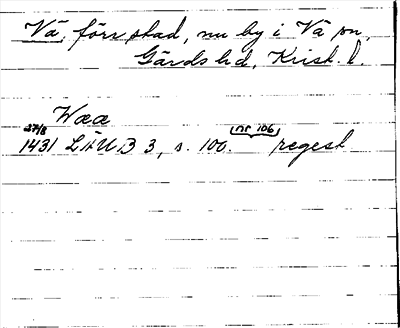 Vä, förr stad, nu by i Vä sn,
Gärds hd, Krist. l.
Wææ
27/8
1431 LÄUB 3, s. 100. (nr 106) regest